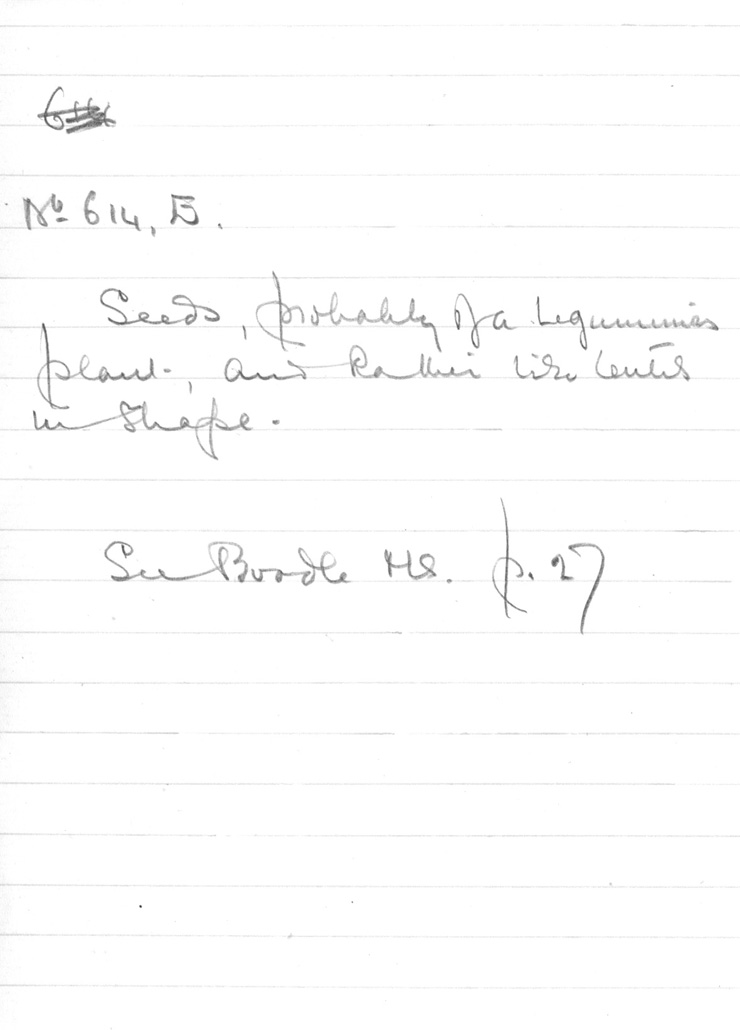 No 614, B.
Seeds, probably of a Leguminous
plant, and rather like lentils
in shape.
See Boodle MS. p. 27